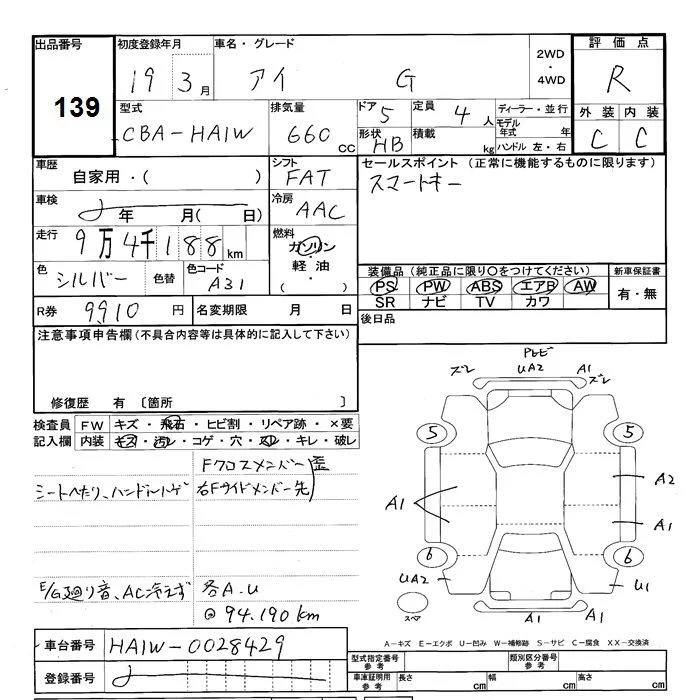 出品番号 初度登録年月 車名・グレード 2WD ・ 4WD 評価点
139
19 3月 アイ G R
型式 排気量 ドア 5 定員 4人 ディーラー・並行 外装 内装
CBA-HA1W 660cc 形状 HB 積載 kg モデル年式 年 C C
ハンドル 左・右
車歴 シフト セールスポイント (正常に機能するものに限ります)
自家用・( ) FAT スマートキー
車検 年 月( 日) 冷房 AAC
走行 9万4千188km 燃料 ガソリン・軽・油・( )
色 シルバー 色替 色コード A31
装備品(純正品に限り○をつけてください) 新車保証書
PS PW ABS エアB AW 有・無
SR ナビ TV カワ
R券 9910円 名変期限 月 日 後日品
注意事項申告欄(不具合内容等は具体的に記入して下さい)
修復歴 有 〔箇所 〕
検査員記入欄 FW キズ・飛石・ヒビ割・リペア跡・×要
内装 キズ・汚レ・コゲ・穴・スレ・キレ・破レ
Fクロスメンバー 歪
シートへたり、ハンドルトゲ 右Fサイドメンバー先
E/G廻り音、AC冷えず 各A.U
94.190km
ズレ UA2 A1 ズレ
5 5
A1 A2
A1
6 6
UA2 U1
スペア A1 A1
A-キズ E-エクボ U-凹み W-補修跡 S-サビ C-腐食 XX-交換済
車台番号 HA1W-0028429
型式指定番号 参考 類別区分番号 参考
登録番号 車庫証明用 参考 長さ cm 幅 cm 高さ cm